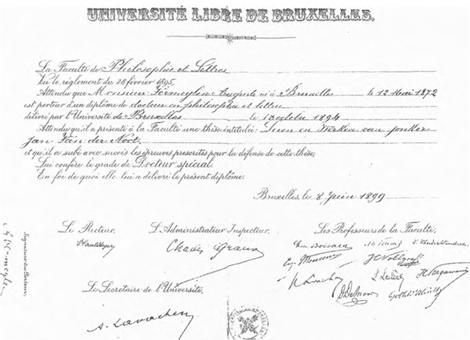 UNIVERSITÉ LIBRE DE BRUXELLES.
La Faculté de Philosophie et Lettres
Vu le règlement du 28 février 1895,
Attendu que Monsieur Vermeylen Auguste né à Bruxelles le 12 Mai 1872
est porteur d'un diplôme de docteur en philosophie et lettres
délivré par l'Université de Bruxelles le 1 octobre 1894
Attendu qu'il a présenté à la Faculté une thèse intitulée: Leven en Werken van jonker
Jan Van der Noot
et qu'il a subi avec succès les épreuves prescrites pour la défense de cette thèse;
Lui confère le grade de Docteur spécial
En foi de quoi elle lui a délivré le présent diplôme.
Bruxelles, le 8 Juin 1899
Le Recteur, L'Administrateur Inspecteur, Les Professeurs de la Faculté,
Charles Graux
Le Secrétaire de l'Université,
Signature du Porteur